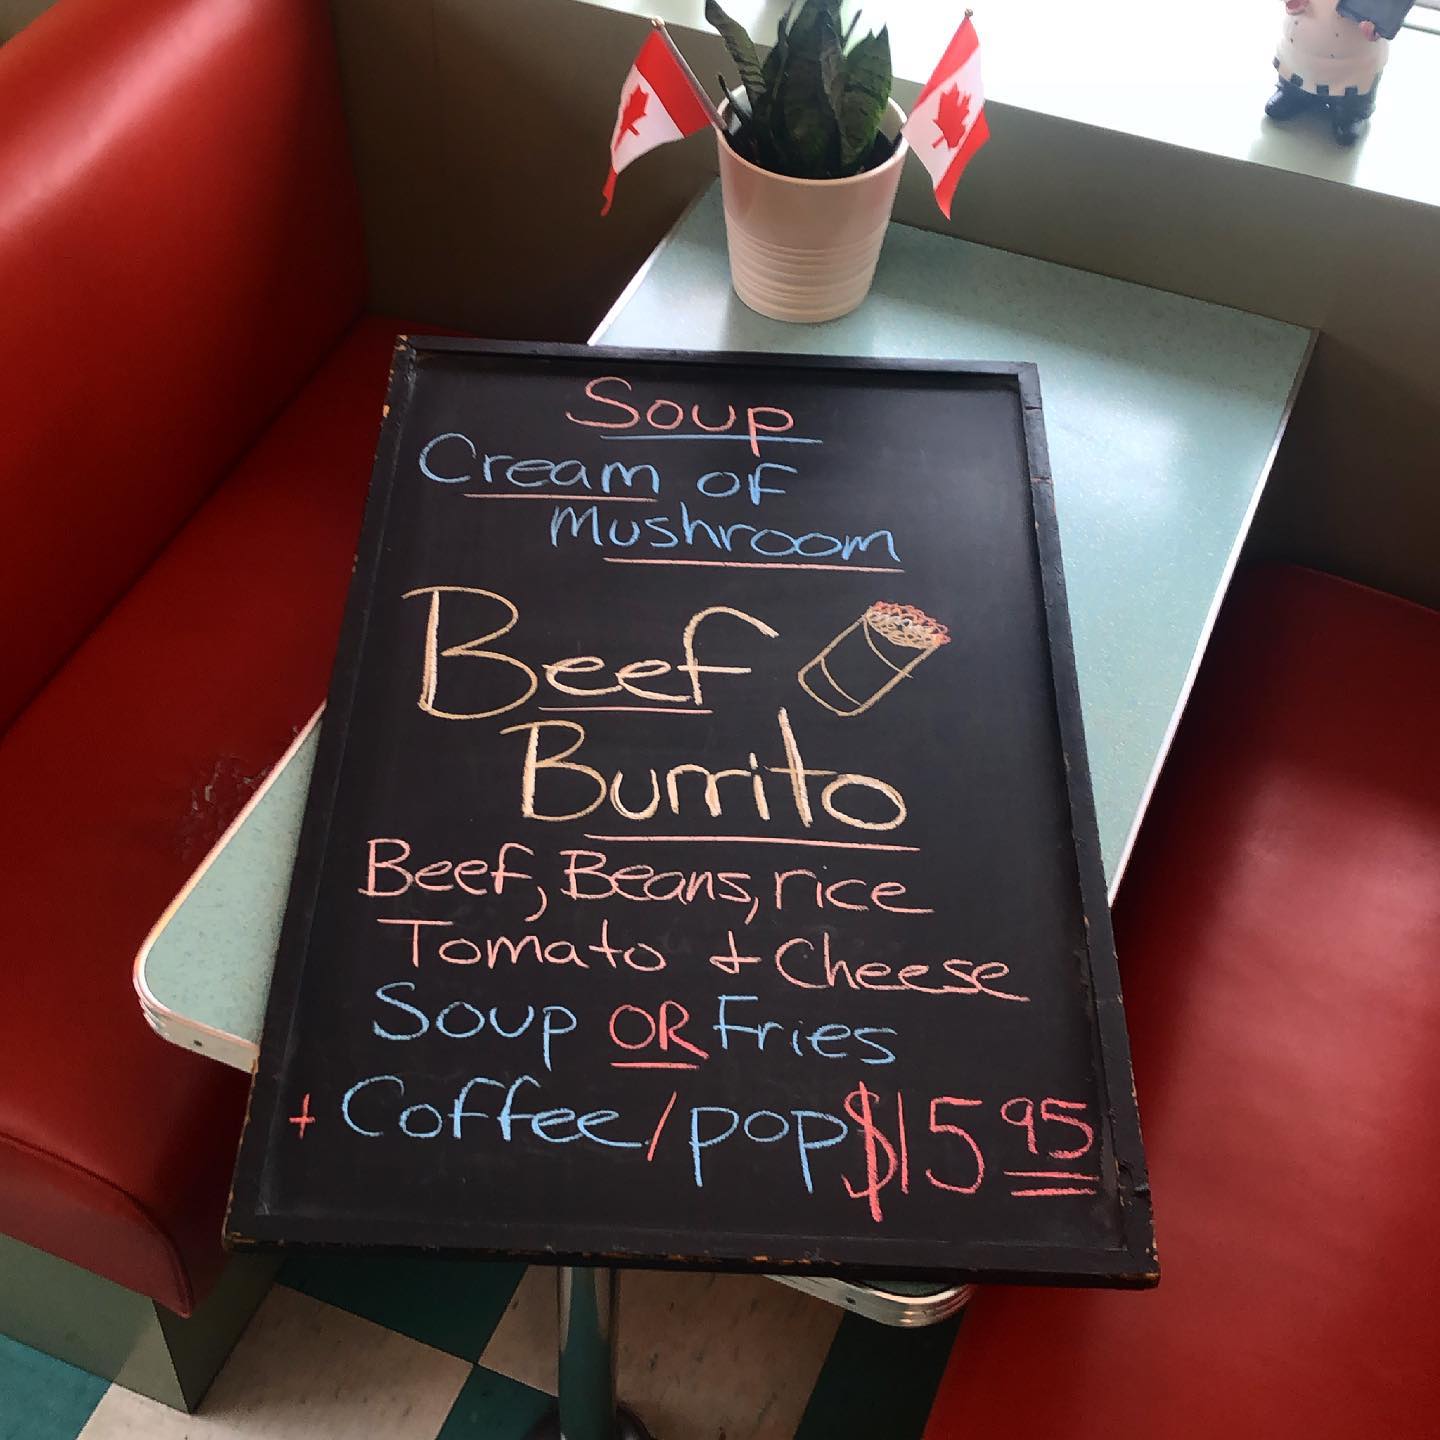 Soup
Cream of
Mushroom
Beef
Burrito
Beef, Beans, rice
Tomato + Cheese
Soup OR Fries
+ Coffee/pop $15.95